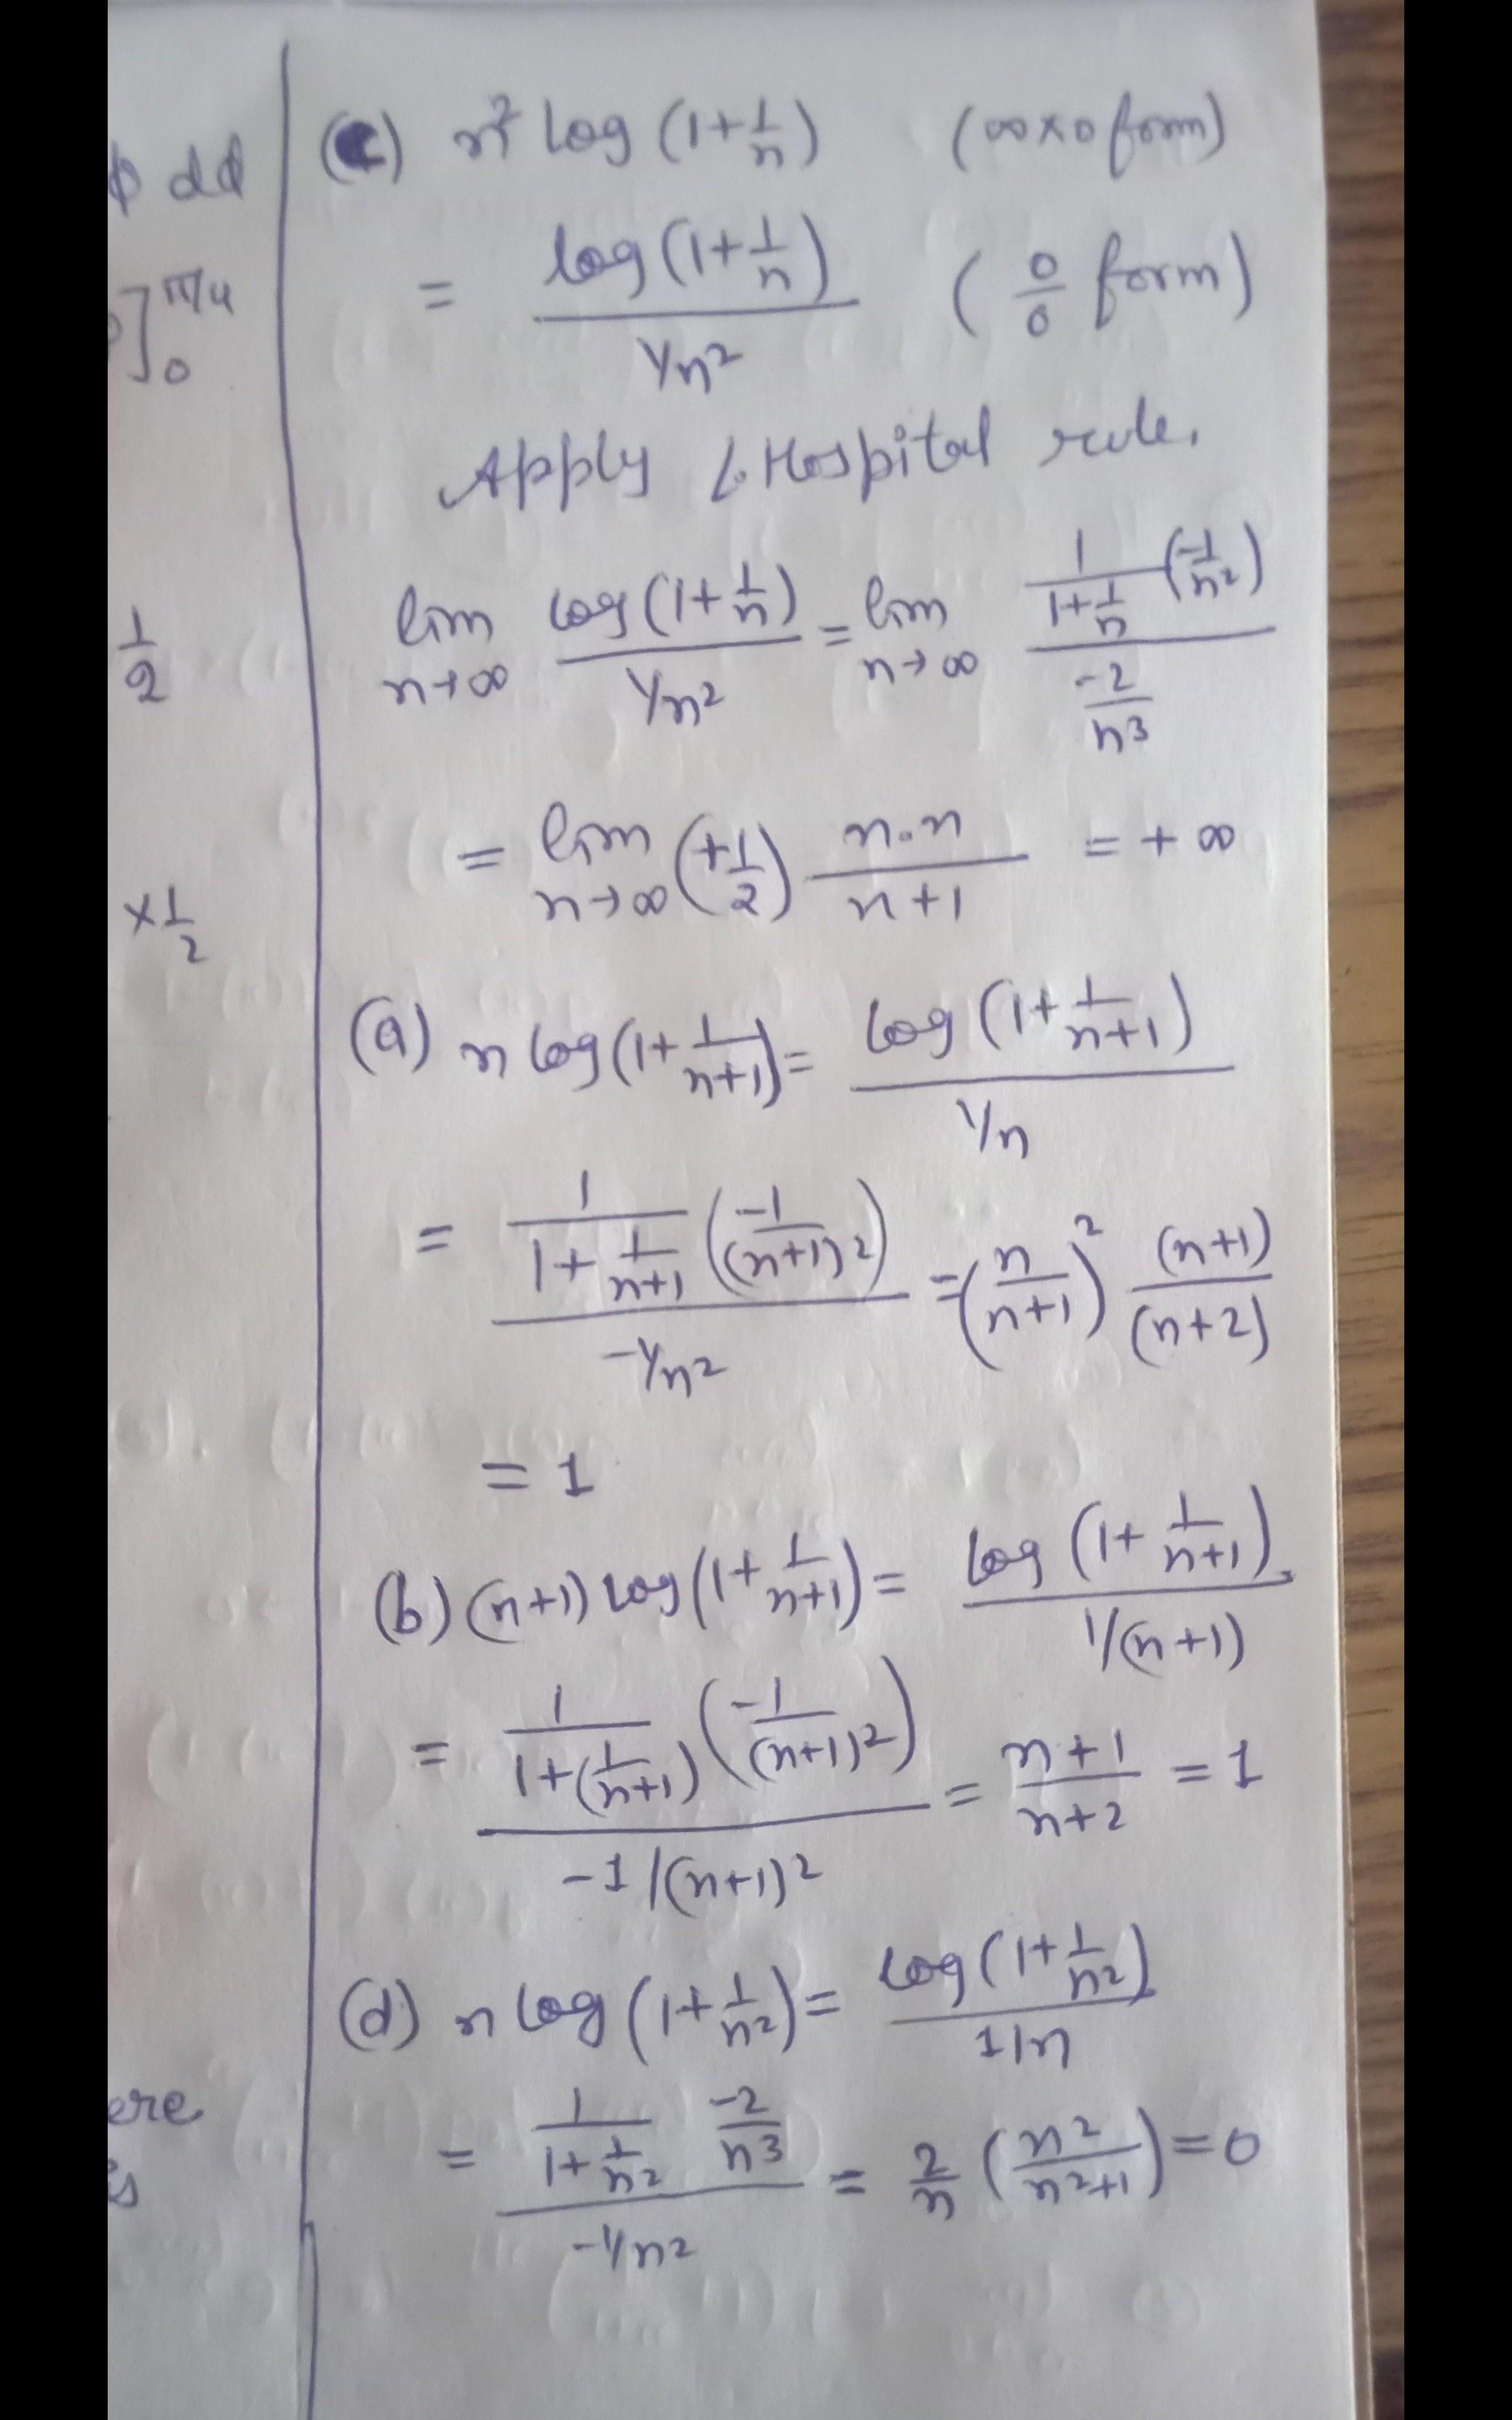 ϕ dϕ
]₀^π/4
1/2
× 1/2
ere
(c) n² log (1+1/n) (∞×0 form)
= log (1+1/n) / 1/n² (0/0 form)
Apply L Hospital rule.
lim n→∞ log (1+1/n) / 1/n² = lim n→∞ 1/(1+1/n) (-1/n²) / (-2/n³)
= lim n→∞ (+1/2) n.n / n+1 = +∞
(a) n log (1+1/(n+1)) = log (1+1/(n+1)) / 1/n
= 1/(1+1/(n+1)) (-1/(n+1)²) / -1/n² = (n/(n+1))² (n+1)/(n+2)
= 1
(b) (n+1) log (1+1/(n+1)) = log (1+1/(n+1)) / 1/(n+1)
= 1/(1+(1/(n+1))) (-1/(n+1)²) / -1/(n+1)² = n+1 / n+2 = 1
(d) n log (1+1/n²) = log (1+1/n²) / 1/n
= 1/(1+1/n²) -2/n³ / -1/n² = 2/n (n²/(n²+1)) = 0